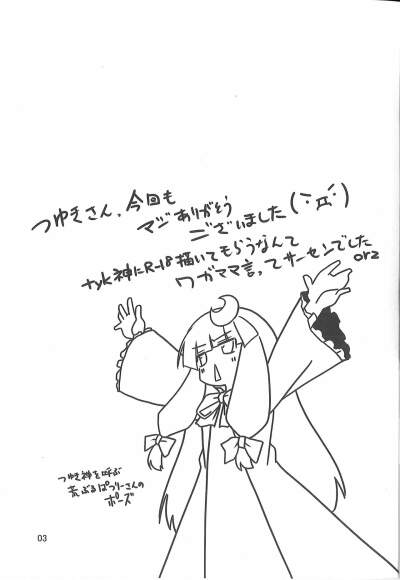 つゆきさん、今回も
マジありがとう
ございました(ﾟДﾟ)
tyk神にR-18描いてもらうなんて
ワガママ言ってサーセンでした
orz
つゆき神を呼ぶ
荒ぶるぱつりーさんの
ポーズ
03